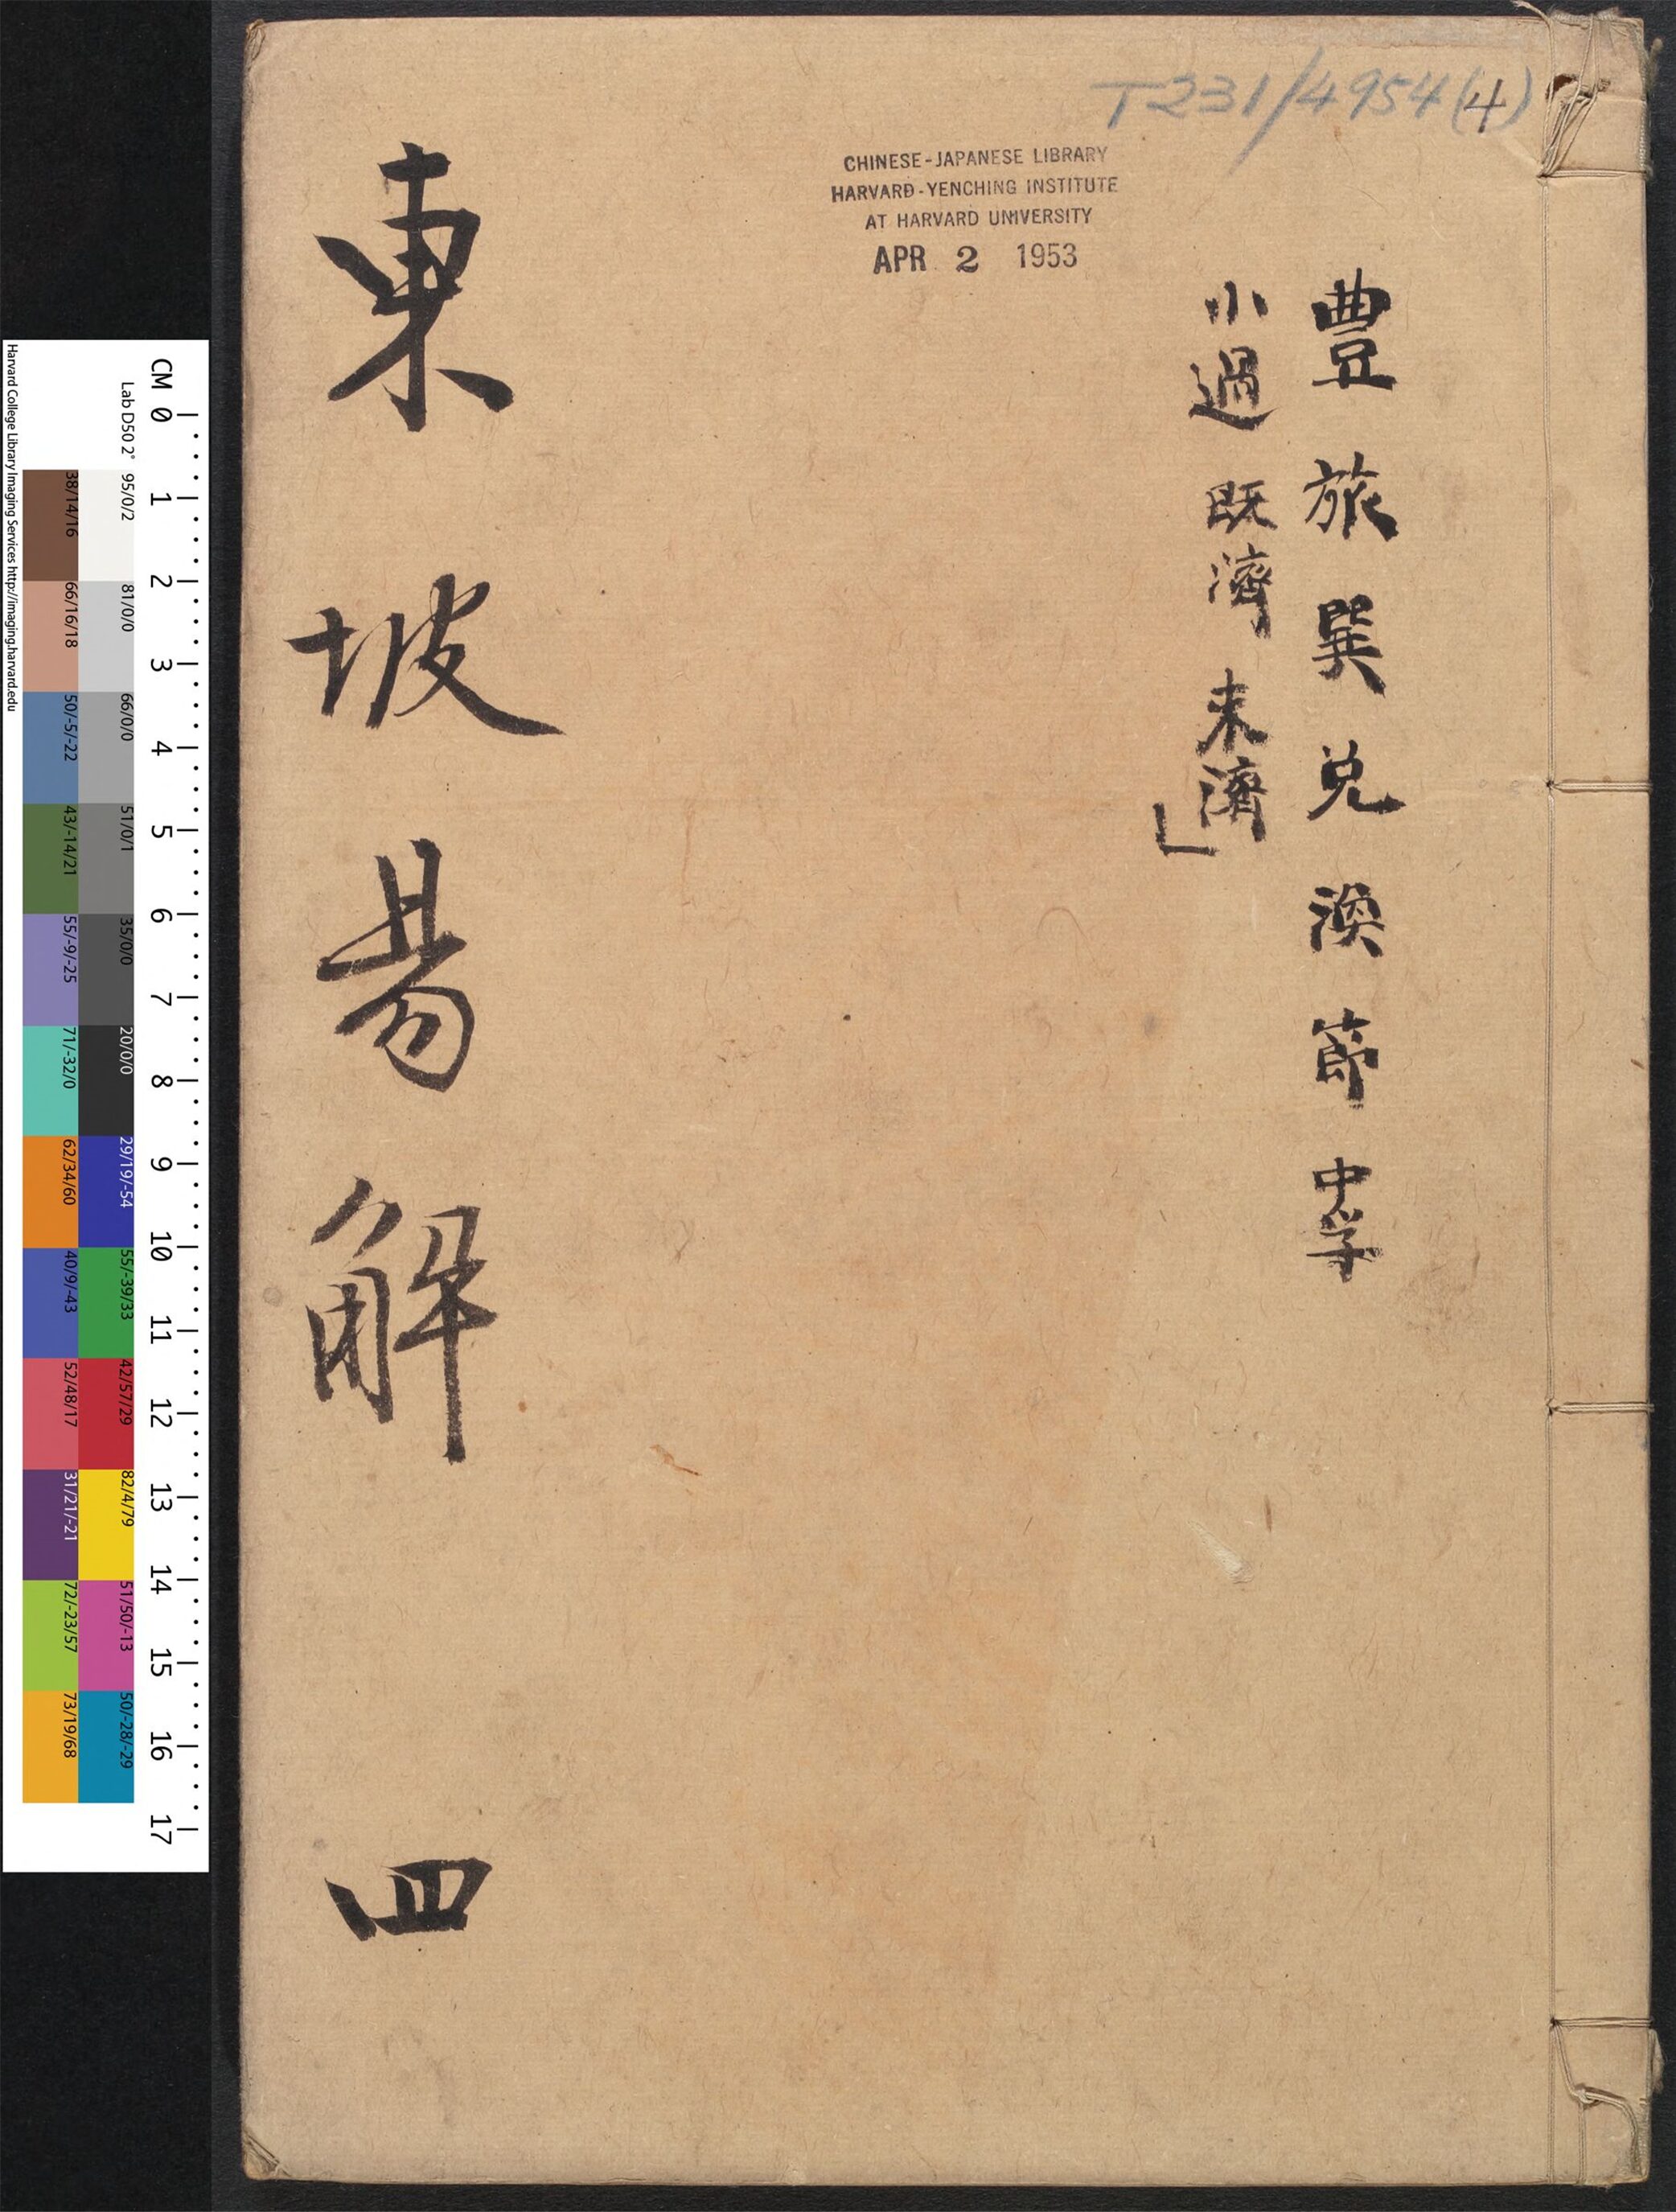 T231/4954(4)
CHINESE-JAPANESE LIBRARY
HARVARD-YENCHING INSTITUTE
AT HARVARD UNIVERSITY
APR 2 1953
豊 旅 巽 兌 渙 節 中孚
小過 既濟 未濟
東坡易解 四
CM 0 1 2 3 4 5 6 7 8 9 10 11 12 13 14 15 16 17
Lab D50 2° 95/0/2 81/0/0 66/0/0 51/0/1 35/0/0 20/0/0 29/19/-54 55/-39/33 42/57/29 82/4/79 51/50/-13 50/-28/-29
38/14/16 66/16/18 50/-5/-22 43/-14/21 55/-9/-25 71/-32/0 62/34/60 40/9/-43 52/48/17 31/21/-21 72/-23/57 73/19/68
Harvard College Library Imaging Services http://imaging.harvard.edu